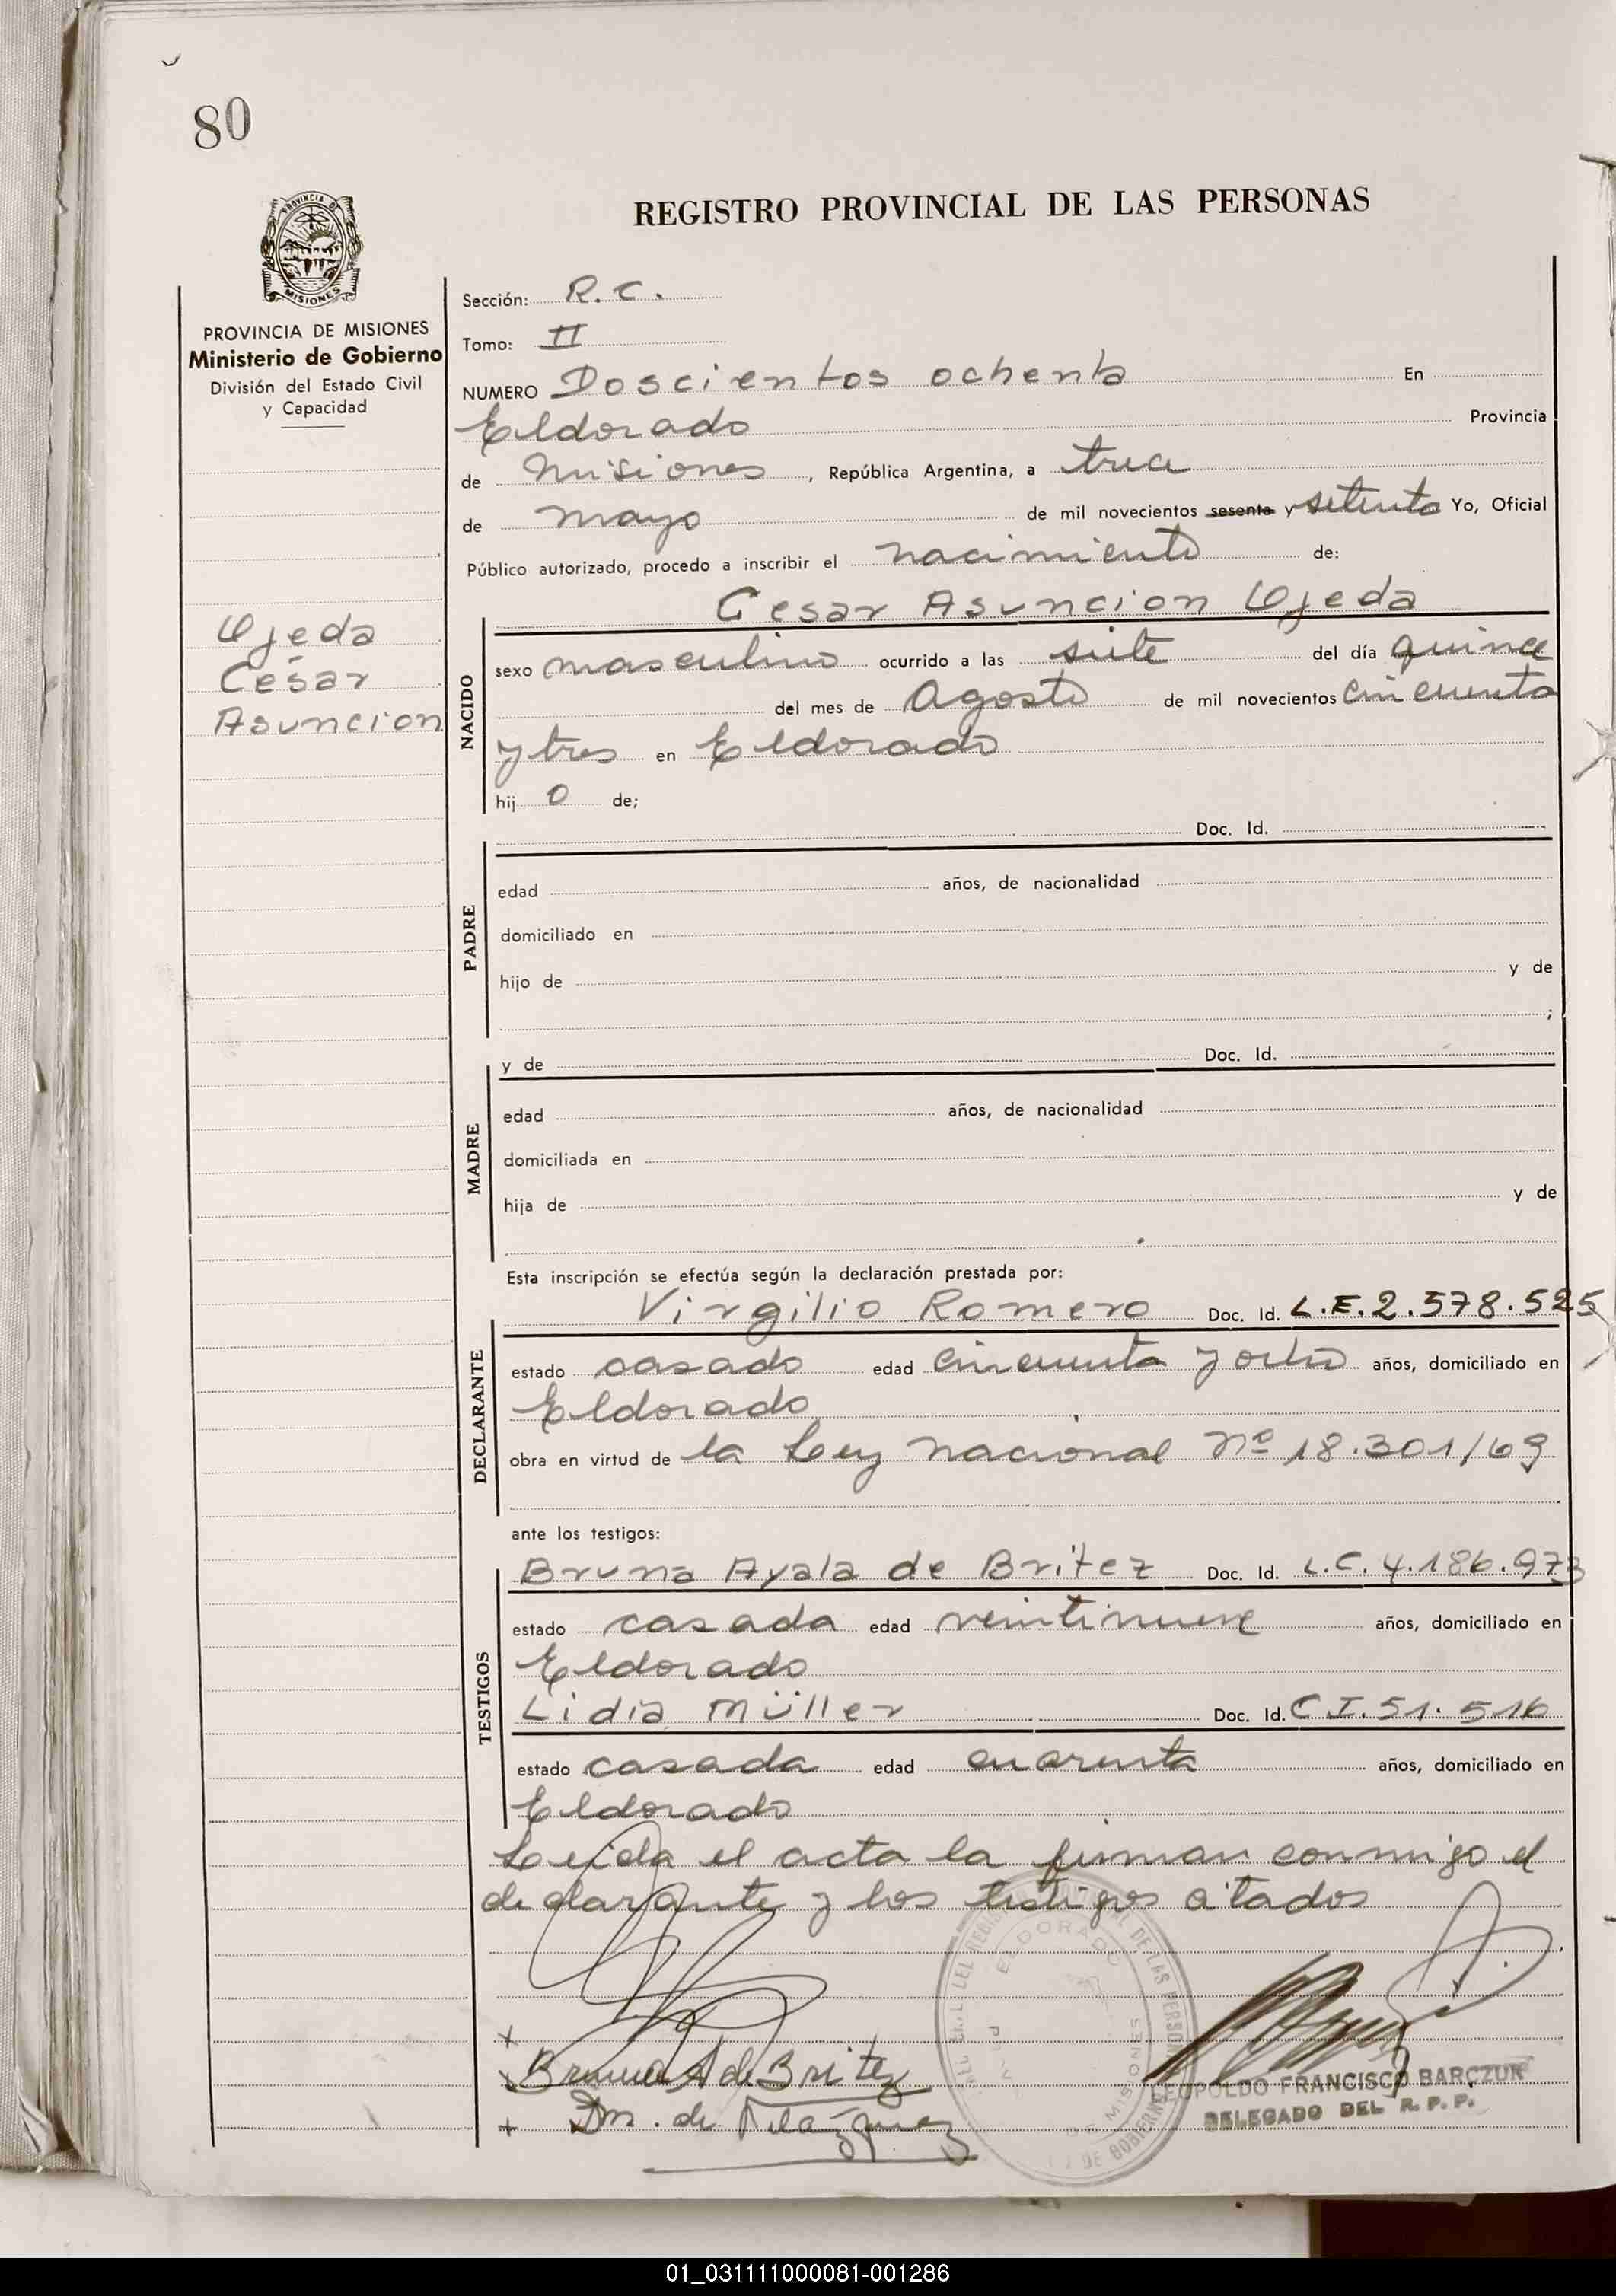 80
PROVINCIA DE
MISIONES
REGISTRO PROVINCIAL DE LAS PERSONAS
PROVINCIA DE MISIONES
Ministerio de Gobierno
División del Estado Civil
y Capacidad
Ojeda
César
Asuncion
Sección: R. C.
Tomo: II
NUMERO Doscientos ochenta En
Eldorado Provincia
de Misiones, República Argentina, a trece
de mayo de mil novecientos sesenta y setenta Yo, Oficial
Público autorizado, procedo a inscribir el nacimiento de:
NACIDO
Cesar Asuncion Ojeda
sexo masculino ocurrido a las siete del día quince
del mes de Agosto de mil novecientos cincuenta
y tres en Eldorado
hij o de;
PADRE
Doc. Id.
edad años, de nacionalidad
domiciliado en
hijo de y de
;
MADRE
y de Doc. Id.
edad años, de nacionalidad
domiciliada en
hija de y de
Esta inscripción se efectúa según la declaración prestada por:
DECLARANTE
Virgilio Romero Doc. Id. L.E. 2.578.525
estado casado edad cincuenta y ocho años, domiciliado en
Eldorado
obra en virtud de la Ley nacional Nº 18.301/69
ante los testigos:
TESTIGOS
Bruna Ayala de Britez Doc. Id. L.C. 4.186.973
estado casada edad veintinueve años, domiciliado en
Eldorado
Lidia Müller Doc. Id. C I. 51. 516
estado casada edad cuarenta años, domiciliado en
Eldorado
Leída el acta la firman conmigo el
declarante y los testigos citados
ELDORADO
MISIONES
x
x Bruna A de Britez
x
LEOPOLDO FRANCISCO BARCZUK
DELEGADO DEL R. P. P.
01_031111000081-001286